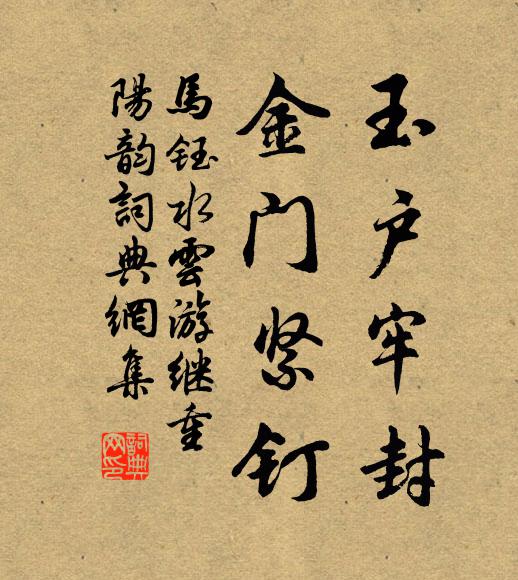 玉户牢封
金门紧钉
馬鈺水雲游继重
陽韵詞典網集
詞典網印